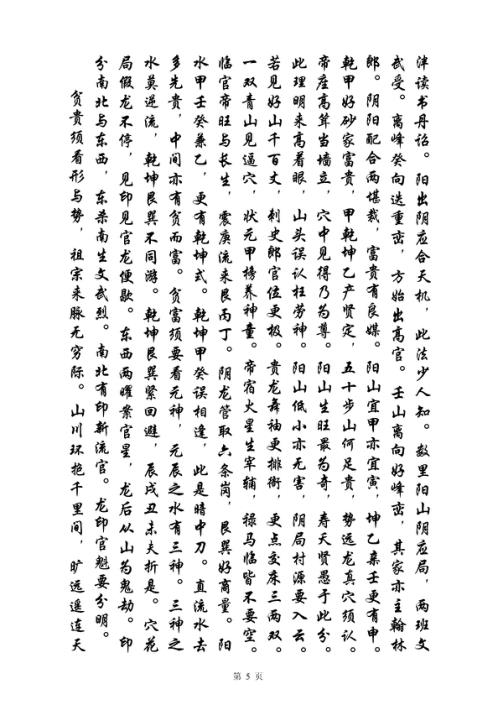 泮读书丹诏。阳出阴应合天机，此法少人知。数里阳山阴应局，两班文
武受。离峰癸向迭重峦，方始出高官。壬山离向好峰峦，其家亦主翰林
郎。阴阳配合两堪裁，富贵有良媒。阳山宜甲亦宜寅，坤乙亲壬更有申。
乾甲好砂家富贵，甲乾坤乙产贤定，五十步山何足贵，势远龙真穴须认。
帝座高茸当墙立，穴中见得乃为尊。阳山生旺最为奇，寿夭贤愚于此分。
此理明来高着眼，山头误认枉劳神。阳山低小亦无害，阴局村源要入云。
若见好山千百丈，刺史郎官位更极。贵龙舞袖更排衙，更点交床三两双。
一双青山见逼穴，状元甲榜养神童。帝宿火星生宰辅，禄马临皆不要空。
临官帝旺与长生，震庚流来艮丙丁。阴龙管取六条岗，艮巽好商量。阳
水甲壬癸兼乙，更有乾坤式。乾坤甲癸误相逢，此是暗中刀。直流水去
多先贵，中间亦有贫而富。贫富须要看元神，元辰之水有三神。三神之
水莫逆流，乾坤艮巽不同游。乾坤艮巽紧回避，辰戌丑未夫折是。穴花
局假龙不停，见印见官龙便歇。东西两曜案官星，龙后从山为鬼劫。印
分南北与东西，东菜南生文武烈。南北有印新流官。龙印官魁要分明。
贫贵须看形与势，祖宗来脉无穷际。山川环抱千里间，旷远遥连天
第 5 页